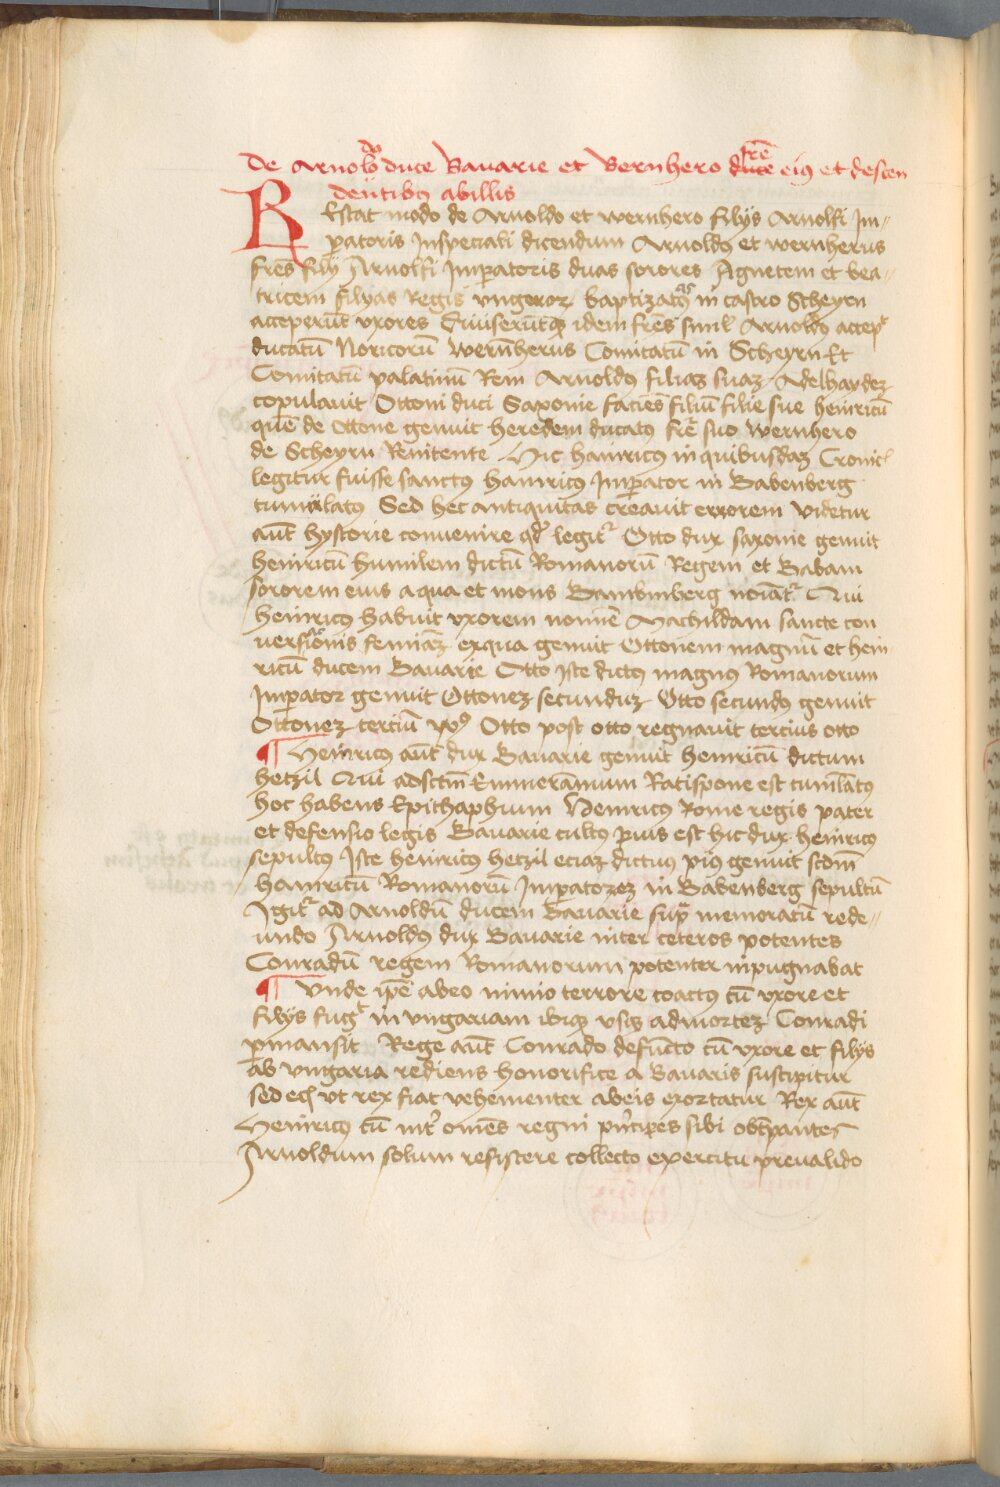 De Arnoldo duce Bauarie et Wernhero frē eiꝰ et descen
dētibꝰ ab illis
REstat modo de Arnoldo et wernhero filijs Arnolfi Jm-
patoris Jnspeciali dicendum Arnoldꝰ et wernherus
frēs filij Arnolfi Jmpatoris duas sorores Agnetem et bea-
tricem filyas Regis vngeroꝝ baptizatas in castro Scheyrn
acceperūt vxores Diuiserūtqꝫ idem frēs simul Arnoldꝰ accepit
ducatū Noricorū wernherus Comitatū in Scheyrn Et
Comitatū palatinū Rem Arnoldꝰ filiaꝫ suaꝫ Adelhaydeꝫ
copulauit Ottoni duci Saxonie faciēs filiū filie sue heinricū
quē de Ottone genuit heredem ducatꝰ frē suo wernhero
de Scheyrn Renitente Hic hainricꝰ in quibusdaꝫ Cronicꝭ
legitur fuisse sanctꝰ hainricꝰ Jmpator in Babenberg
tumulatꝰ Sed hec antiquitas creauit errorem videtur
aūt hystorie conuenire qd legitꝛ Otto dux saxonie genuit
heinricū humilem dictū Romanorū Regem et Babam
sororem eius a qua et mons Bambinberg noīatꝛ Qui
heinricꝰ habuit vxorem nomīe Machildam sancte con
uersaōnis femīaꝫ ex qua genuit Ottonem magnū et hein
ricū ducem Bauarie Otto iste dictꝰ magnꝰ Romanorum
Jmpator genuit Ottoneꝫ secunduꝫ Otto secundꝰ genuit
Ottoneꝫ terciū Otto post otto regnauit tercius otto
¶ Heinricꝰ aūt dux Bauarie genuit heinricū dictum
hetzil Qui ad sctm̄ Emmerāmum Ratispone est tumlatꝰ
hoc habens Epithaphium Heinricꝰ Rome regis pater
et defensio legis Bauarie cultꝰ pius est hic dux heinricꝰ
sepultꝰ Jste heinricꝰ hetzil eciaꝫ dictus piꝰ genuit scdm̄
hainricū Romanorū Jmpatoreꝫ in Babenberg sepultū
Jgitꝛ ad Arnoldū ducem Bauarie sup̄ memoratū rede-
undo Arnoldꝰ dux Bauarie inter ceteros potentes
Conradū regem Romanorum potenter inpugnabat
¶ Vnde ip̄e ab eo nimio terrore coactꝰ cū vxore et
filijs fugit in vngariam ibiqꝫ vsqꝫ ad morteꝫ Conradi
pmansit Rege aūt Conrado defūcto cū vxore et filijs
ab vngaria rediens honorifice a Bauaris suscipitur
sed ecꝭ vt rex fiat vehementer ab eis exortatur Rex aūt
Heinricꝰ cū intꝰ omēs regni prīcipes sibi obtp̄antes
Arnoldum solum resistere collecto exercitu preualido